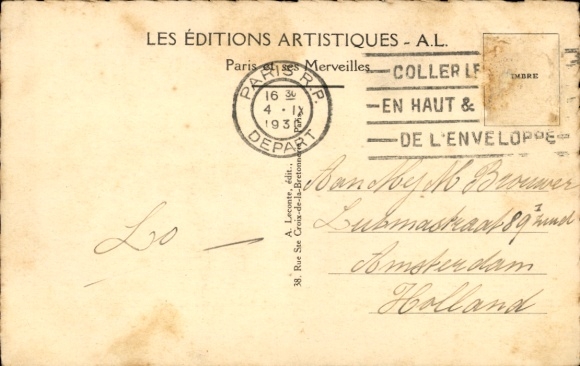 LES ÉDITIONS ARTISTIQUES - A.L.
Paris et ses Merveilles
PARIS R.P.
16 30
4 - IX
193
DÉPART
COLLER LE
EN HAUT &
DE L'ENVELOPPE
TIMBRE
A. Leconte, édit.,
38, Rue Ste Croix-de-la-Bretonnerie, Paris
Lo —
Aan Mej M Brouwer
Lutmastraat 89 I
Amsterdam
Holland